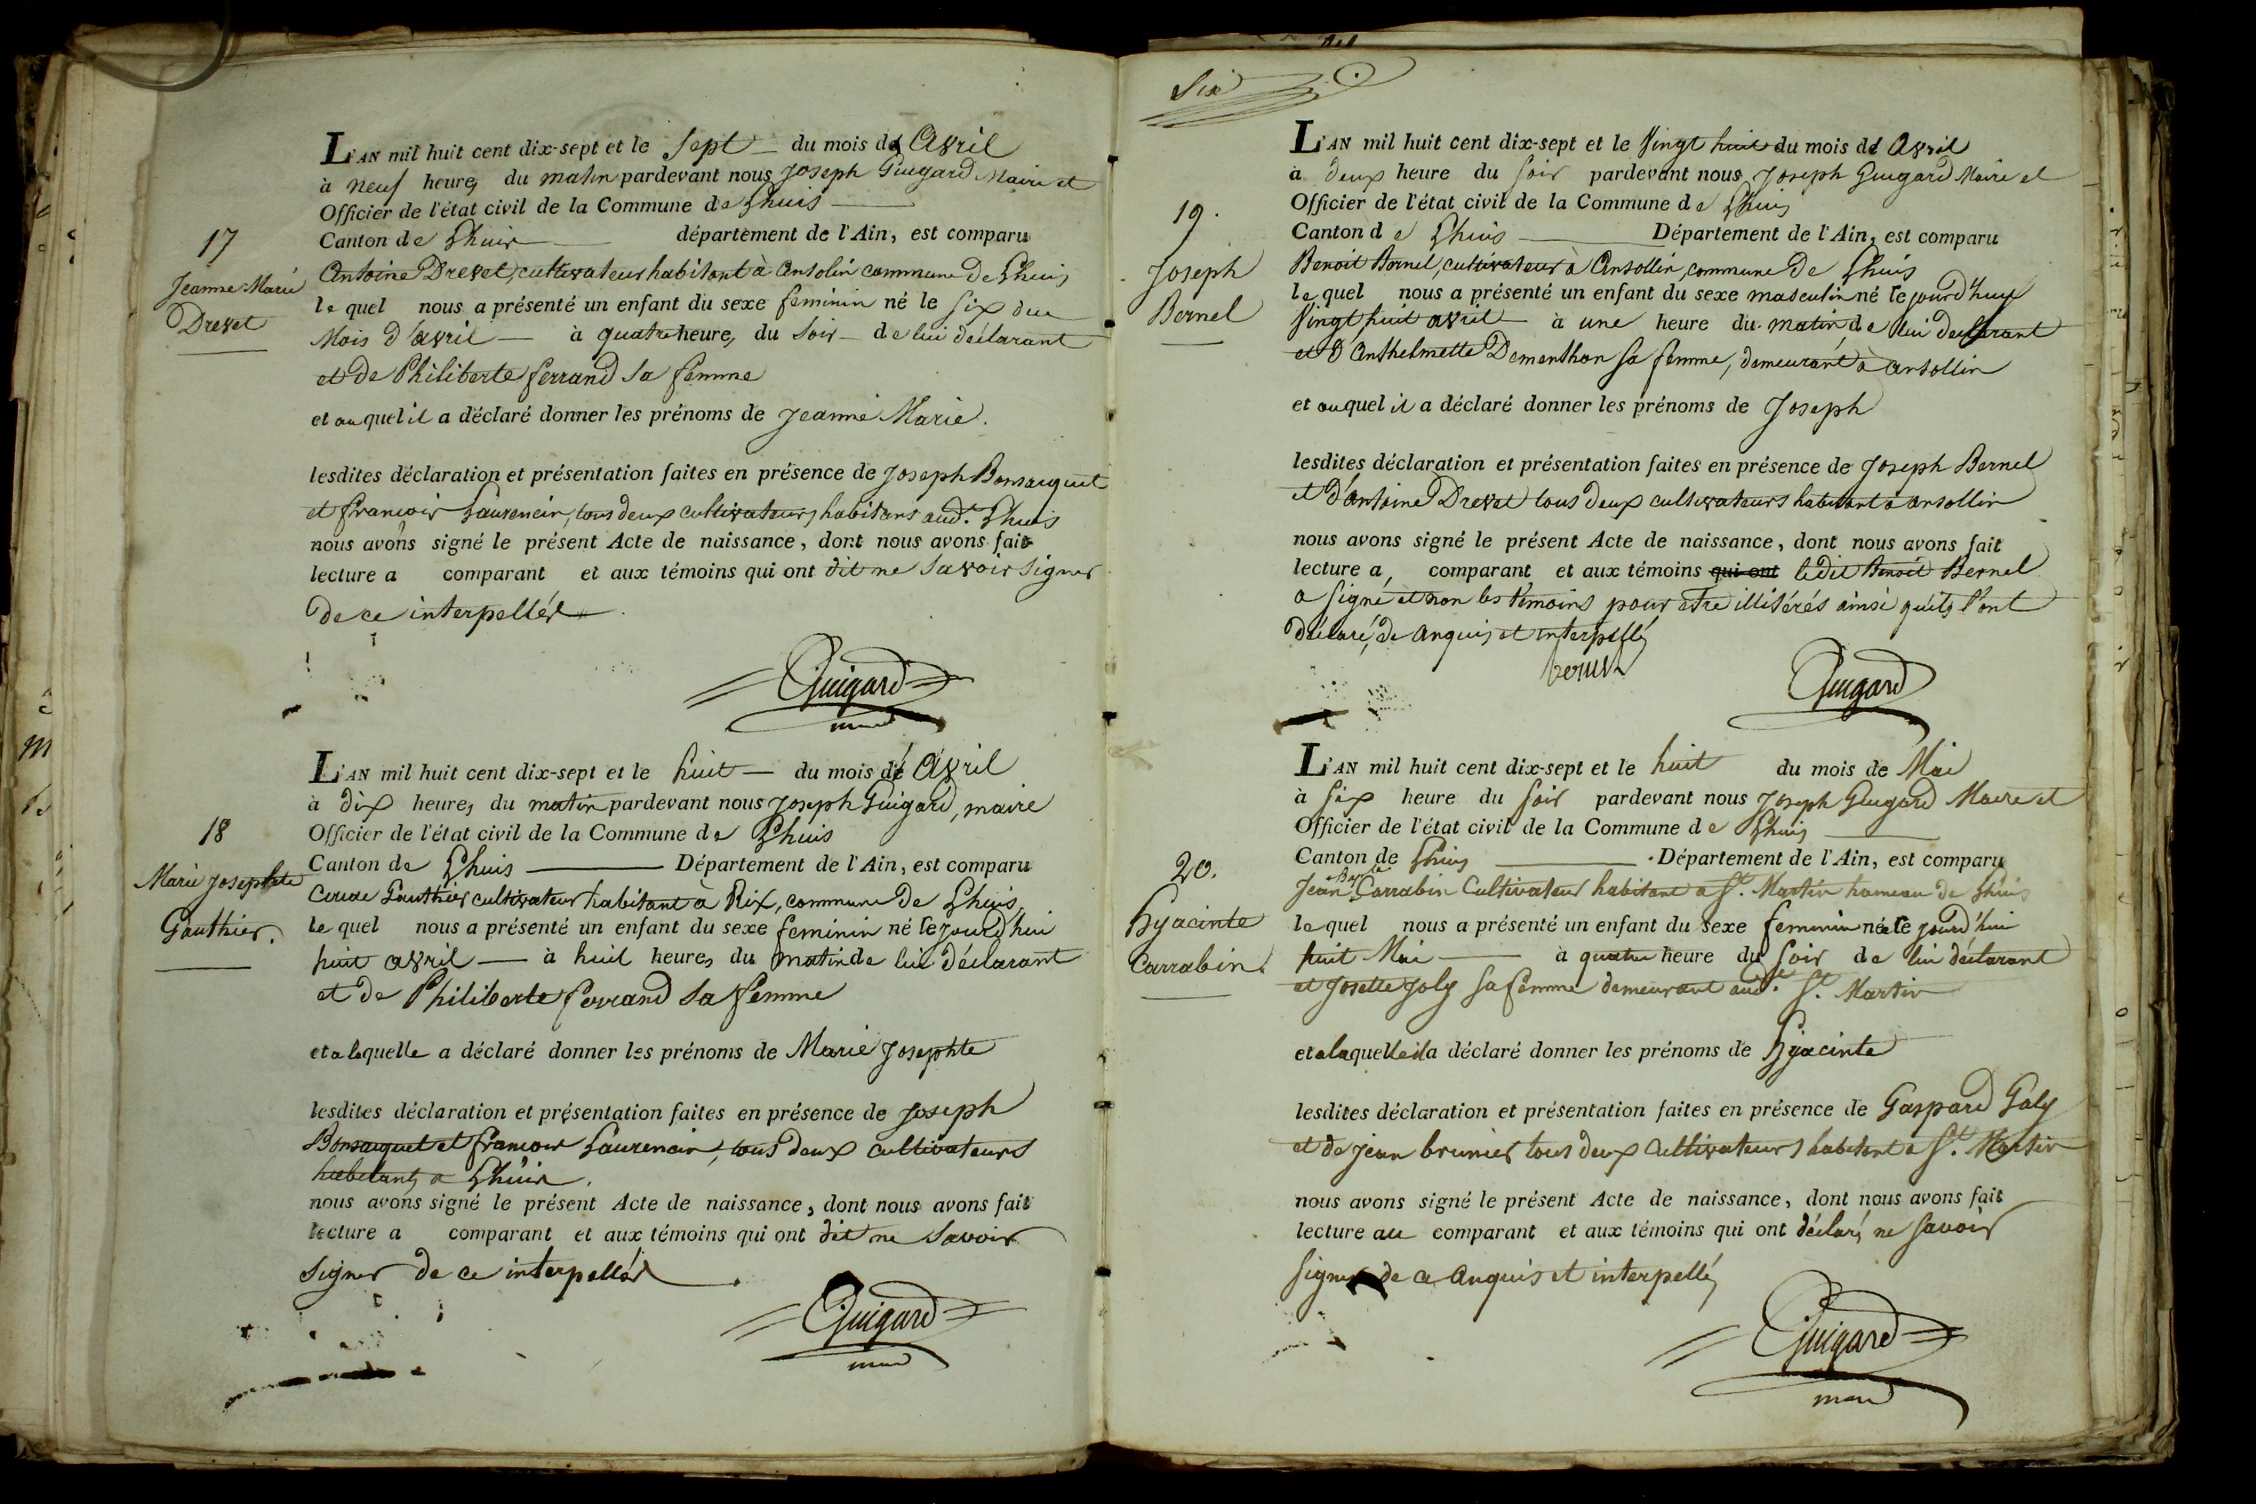 17
Jeanne Marie
Drevet
L'AN mil huit cent dix-sept et le sept du mois d'Avril
à neuf heures du matin pardevant nous Joseph Guigard Maire et
Officier de l'état civil de la Commune de Lhuis
Canton de Lhuis département de l'Ain, est comparu
Antoine Drevet, cultivateur habitant à ansolin commune De Lhuis
lequel nous a présenté un enfant du sexe feminin né le six du
Mois d'avril à quatre heures du soir de lui déclarant
et de Philiberte ferrand sa femme
et auquel il a déclaré donner les prénoms de Jeanne Marie.
lesdites déclaration et présentation faites en présence de Joseph Bonsacquet
et francois Laurencin, tous deux cultivateurs habitans aud.t Lhuis
nous avons signé le présent Acte de naissance, dont nous avons fait
lecture a comparant et aux témoins qui ont dit ne savoir signer
de ce interpellés
Guigard
maire
18
Marie Josephte
Gauthier.
L'AN mil huit cent dix-sept et le huit du mois d'Avril
à dix heures du matin pardevant nous Joseph Guigard, maire
Officier de l'état civil de la Commune de Lhuis
Canton de Lhuis Département de l'Ain, est comparu
Gauthier cultivateur habitant à Rix, commune De Lhuis,
lequel nous a présenté un enfant du sexe feminin né le jourd'hui
huit avril à huit heures du matin de lui déclarant
et de Philiberte ferrand sa femme
et a laquelle a déclaré donner les prénoms de Marie Josephte
lesdites déclaration et présentation faites en présence de Joseph
Bonsacquet et francois Laurencin, tous deux cultivateurs
habitants a Lhuis.
nous avons signé le présent Acte de naissance, dont nous avons fait
lecture a comparant et aux témoins qui ont dit ne savoir
signer de ce interpellés
Guigard
maire
Six
19.
Joseph
Bernel
L'AN mil huit cent dix-sept et le Vingt huit du mois d'Avril
à deux heure du soir pardevant nous Joseph Guigard Maire et
Officier de l'état civil de la Commune de Lhuis
Canton de Lhuis Département de l'Ain, est comparu
Benoit Bernel, cultivateur à Ansollin, commune de Lhuis
lequel nous a présenté un enfant du sexe masculin né le jourd'huy
Vingt huit avril à une heure du matin de lui déclarant
et d'Anthelmette Dementhon sa femme, demeurant à ansollin
et auquel il a déclaré donner les prénoms de Joseph
lesdites déclaration et présentation faites en présence de Joseph Bernel
et d'antoine Drevet tous deux cultivateurs habitant à ansollin
nous avons signé le présent Acte de naissance, dont nous avons fait
lecture a comparant et aux témoins qui ont ledit Benoit Bernel
a signé et non les témoins pour être illitérés ainsi qu'ils l'ont
déclaré, de anquis et interpellés
Guigard
20.
Hyacinte
Carrabin.
L'AN mil huit cent dix-sept et le huit du mois de Mai
à six heure du soir pardevant nous Joseph Guigard Maire et
Officier de l'état civil de la Commune de Lhuis
Canton de Lhuis Département de l'Ain, est comparu
Jean B.te Carrabin Cultivateur habitant a S.t Martin hameau de Lhuis
lequel nous a présenté un enfant du sexe feminin née le jourd'hui
huit Mai à quatre heure du soir de lui déclarant
et Josette Joly sa femme demeurant aud. S.t Martin
et a laquelle il a déclaré donner les prénoms de Hyacinte
lesdites déclaration et présentation faites en présence de Gaspard Galy
et de jean brunier tous deux cultivateurs habitant a S.t Martin
nous avons signé le présent Acte de naissance, dont nous avons fait
lecture au comparant et aux témoins qui ont déclaré ne savoir
signer de ce anquis et interpellés
Guigard
maire